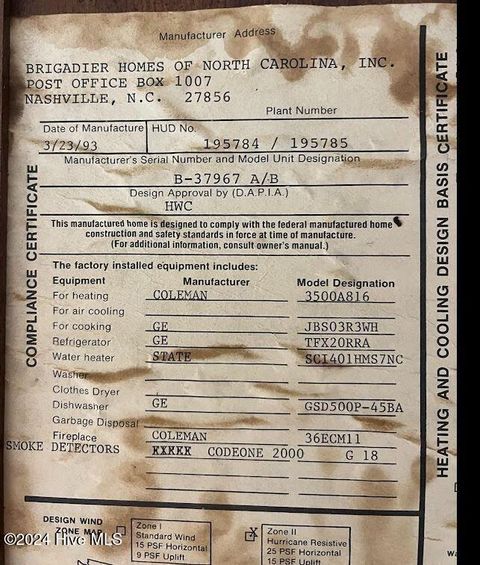 Manufacturer Address
BRIGADIER HOMES OF NORTH CAROLINA, INC.
POST OFFICE BOX 1007
NASHVILLE, N.C. 27856
Plant Number
Date of Manufacture HUD No.
3/23/93 195784 / 195785
Manufacturer's Serial Number and Model Unit Designation
B-37967 A/B
Design Approval by (D.A.P.I.A.)
HWC
This manufactured home is designed to comply with the federal manufactured home
construction and safety standards in force at time of manufacture.
(For additional information, consult owner's manual.)
The factory installed equipment includes:
Equipment Manufacturer Model Designation
For heating COLEMAN 3500A816
For air cooling
For cooking GE JBS03R3WH
Refrigerator GE TFX20RRA
Water heater STATE SCI401HMS7NC
Washer
Clothes Dryer
Dishwasher GE GSD500P-45BA
Garbage Disposal
Fireplace COLEMAN 36ECM11
SMOKE DETECTORS XXXXX CODEONE 2000 G 18
COMPLIANCE CERTIFICATE
HEATING AND COOLING DESIGN BASIS CERTIFICATE
DESIGN WIND
ZONE MAP
Zone I
Standard Wind
15 PSF Horizontal
9 PSF Uplift
X Zone II
Hurricane Resistive
25 PSF Horizontal
15 PSF Uplift
©2024 Hive MLS